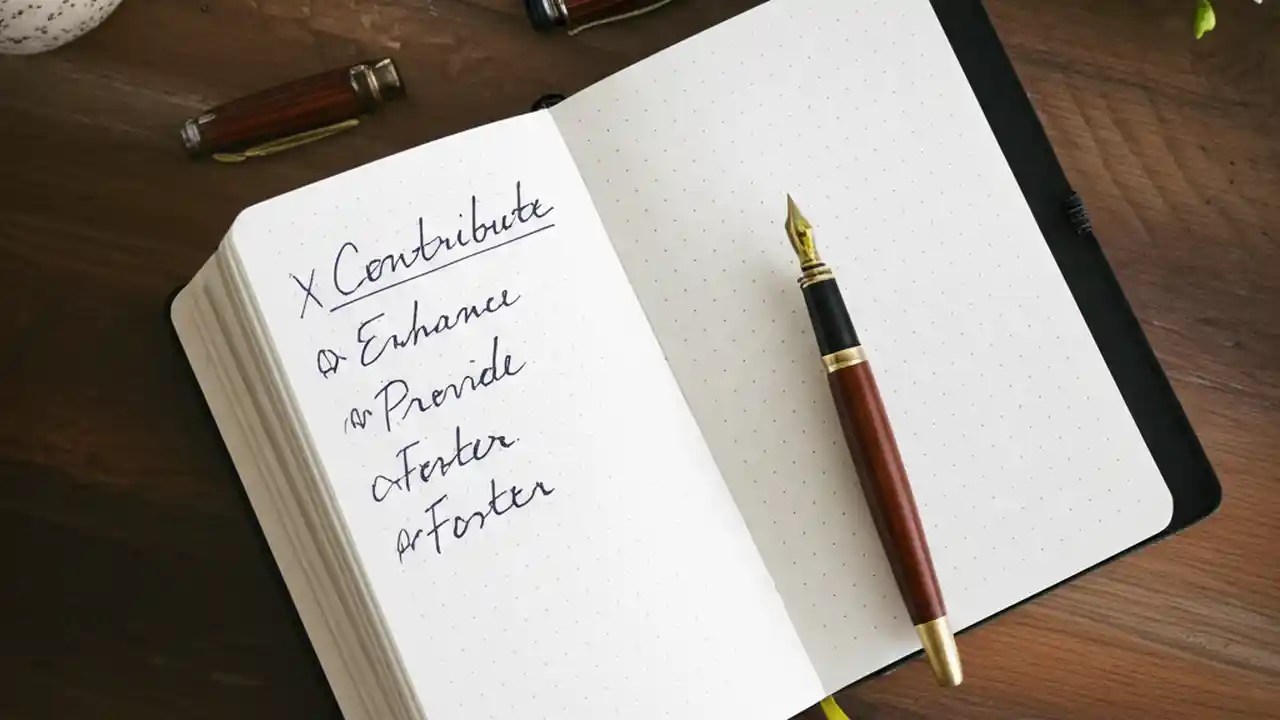 X Contribute
Enhance
Provide
Foster
Foster